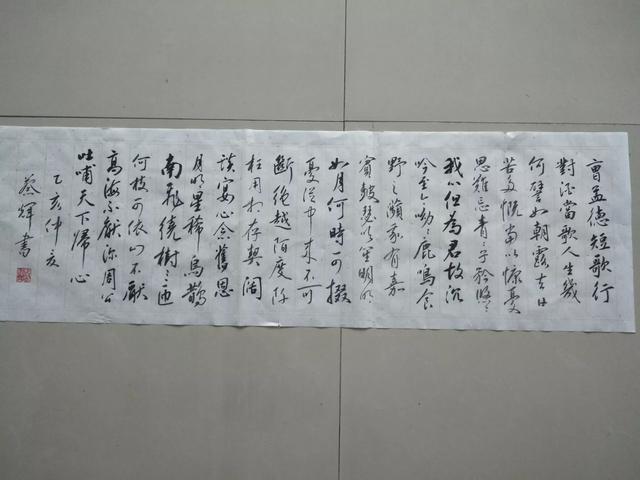 曹孟德短歌行
對酒當歌人生幾
何譬如朝露去日
苦多慨當以慷憂
思難忘青々子衿悠々
我心但為君故沉
吟至今呦々鹿鳴食
野之蘋我有嘉
賓鼓瑟吹笙明明
如月何時可掇
憂從中來不可
斷絕越陌度阡
枉用相存契闊
談宴心念舊恩
月明星稀烏鵲
南飛繞樹三匝
何枝可依山不厭
高海不厭深周公
吐哺天下歸心
乙亥仲夏
蔡輝書